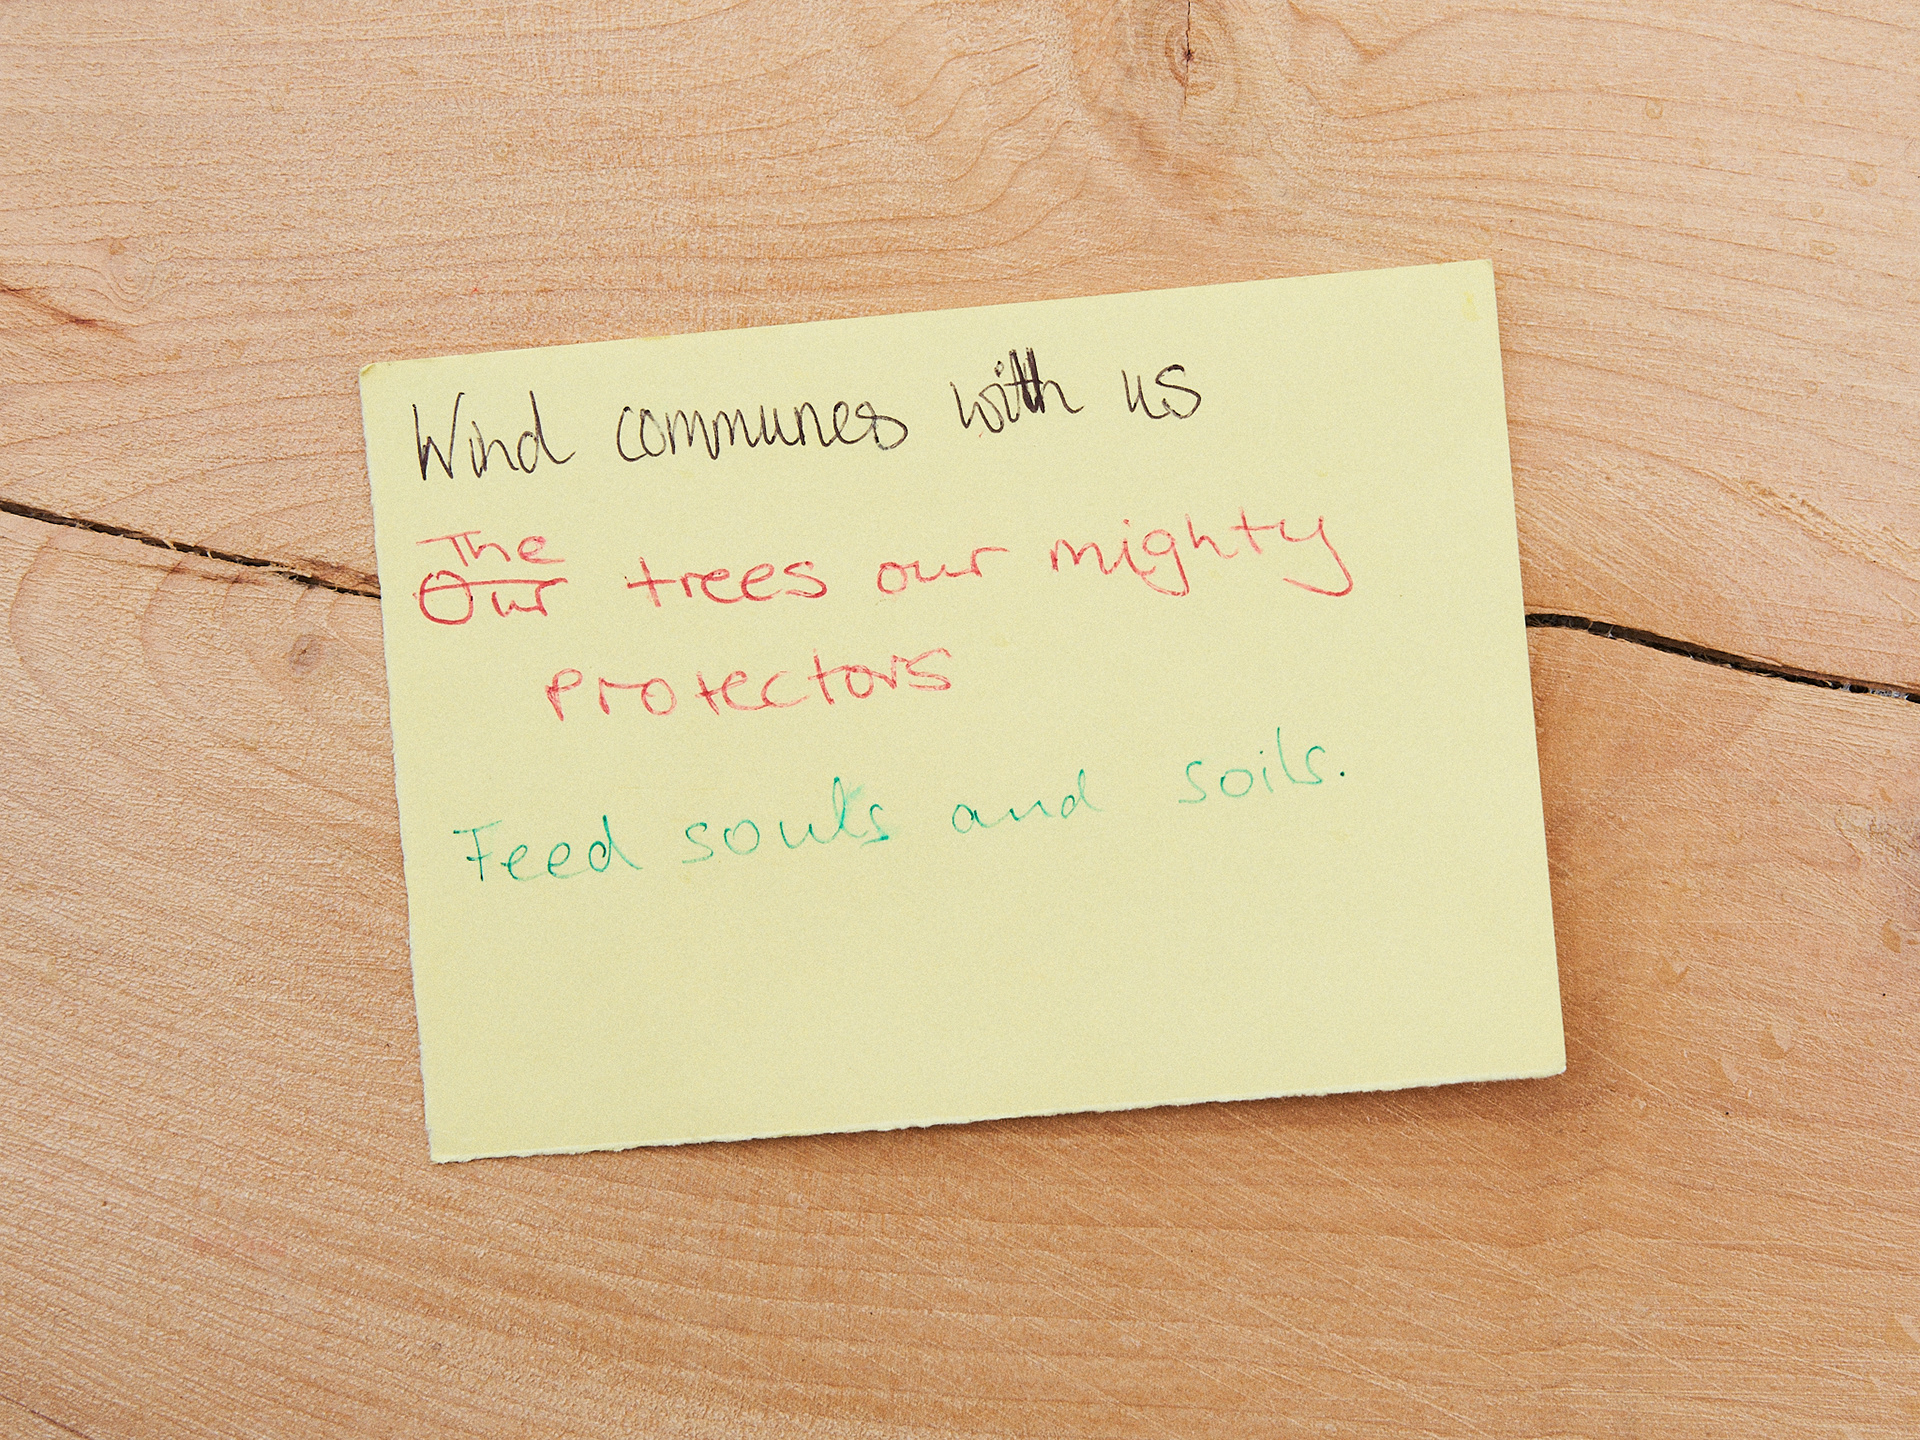 Wind communes with us
The
Our trees our mighty
protectors
Feed souls and soils.